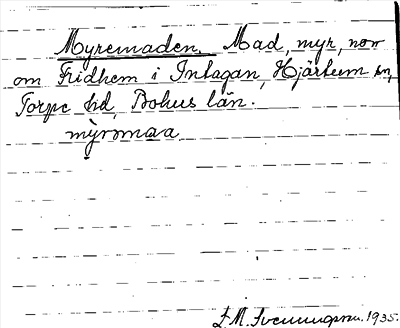 Myremaden. Mad, myr, norr
om Fridhem i Intagan, Hjärtum sn,
Torpe hd, Bohus län.
myrmaa
E.M. Svenungsson. 1935.